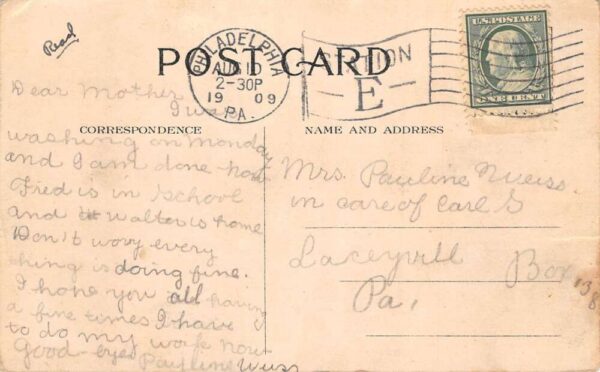 Read
POST CARD
PHILADELPHIA
AUG 10
2-30P
1909
PA.
STATION
E
U.S. POSTAGE
ONE CENT
CORRESPONDENCE
NAME AND ADDRESS
Dear Mother
I was
washing on Monday
and I am done now
Fred is in school
and Walter is home
Don't wory every
thing is doing fine.
I hope you all having
a fine times I have
to do my work now
Good-eyes Pauline Weiss
Mrs. Pauline Weiss
in care of Carl G
Laceyvill
Box 138
Pa,